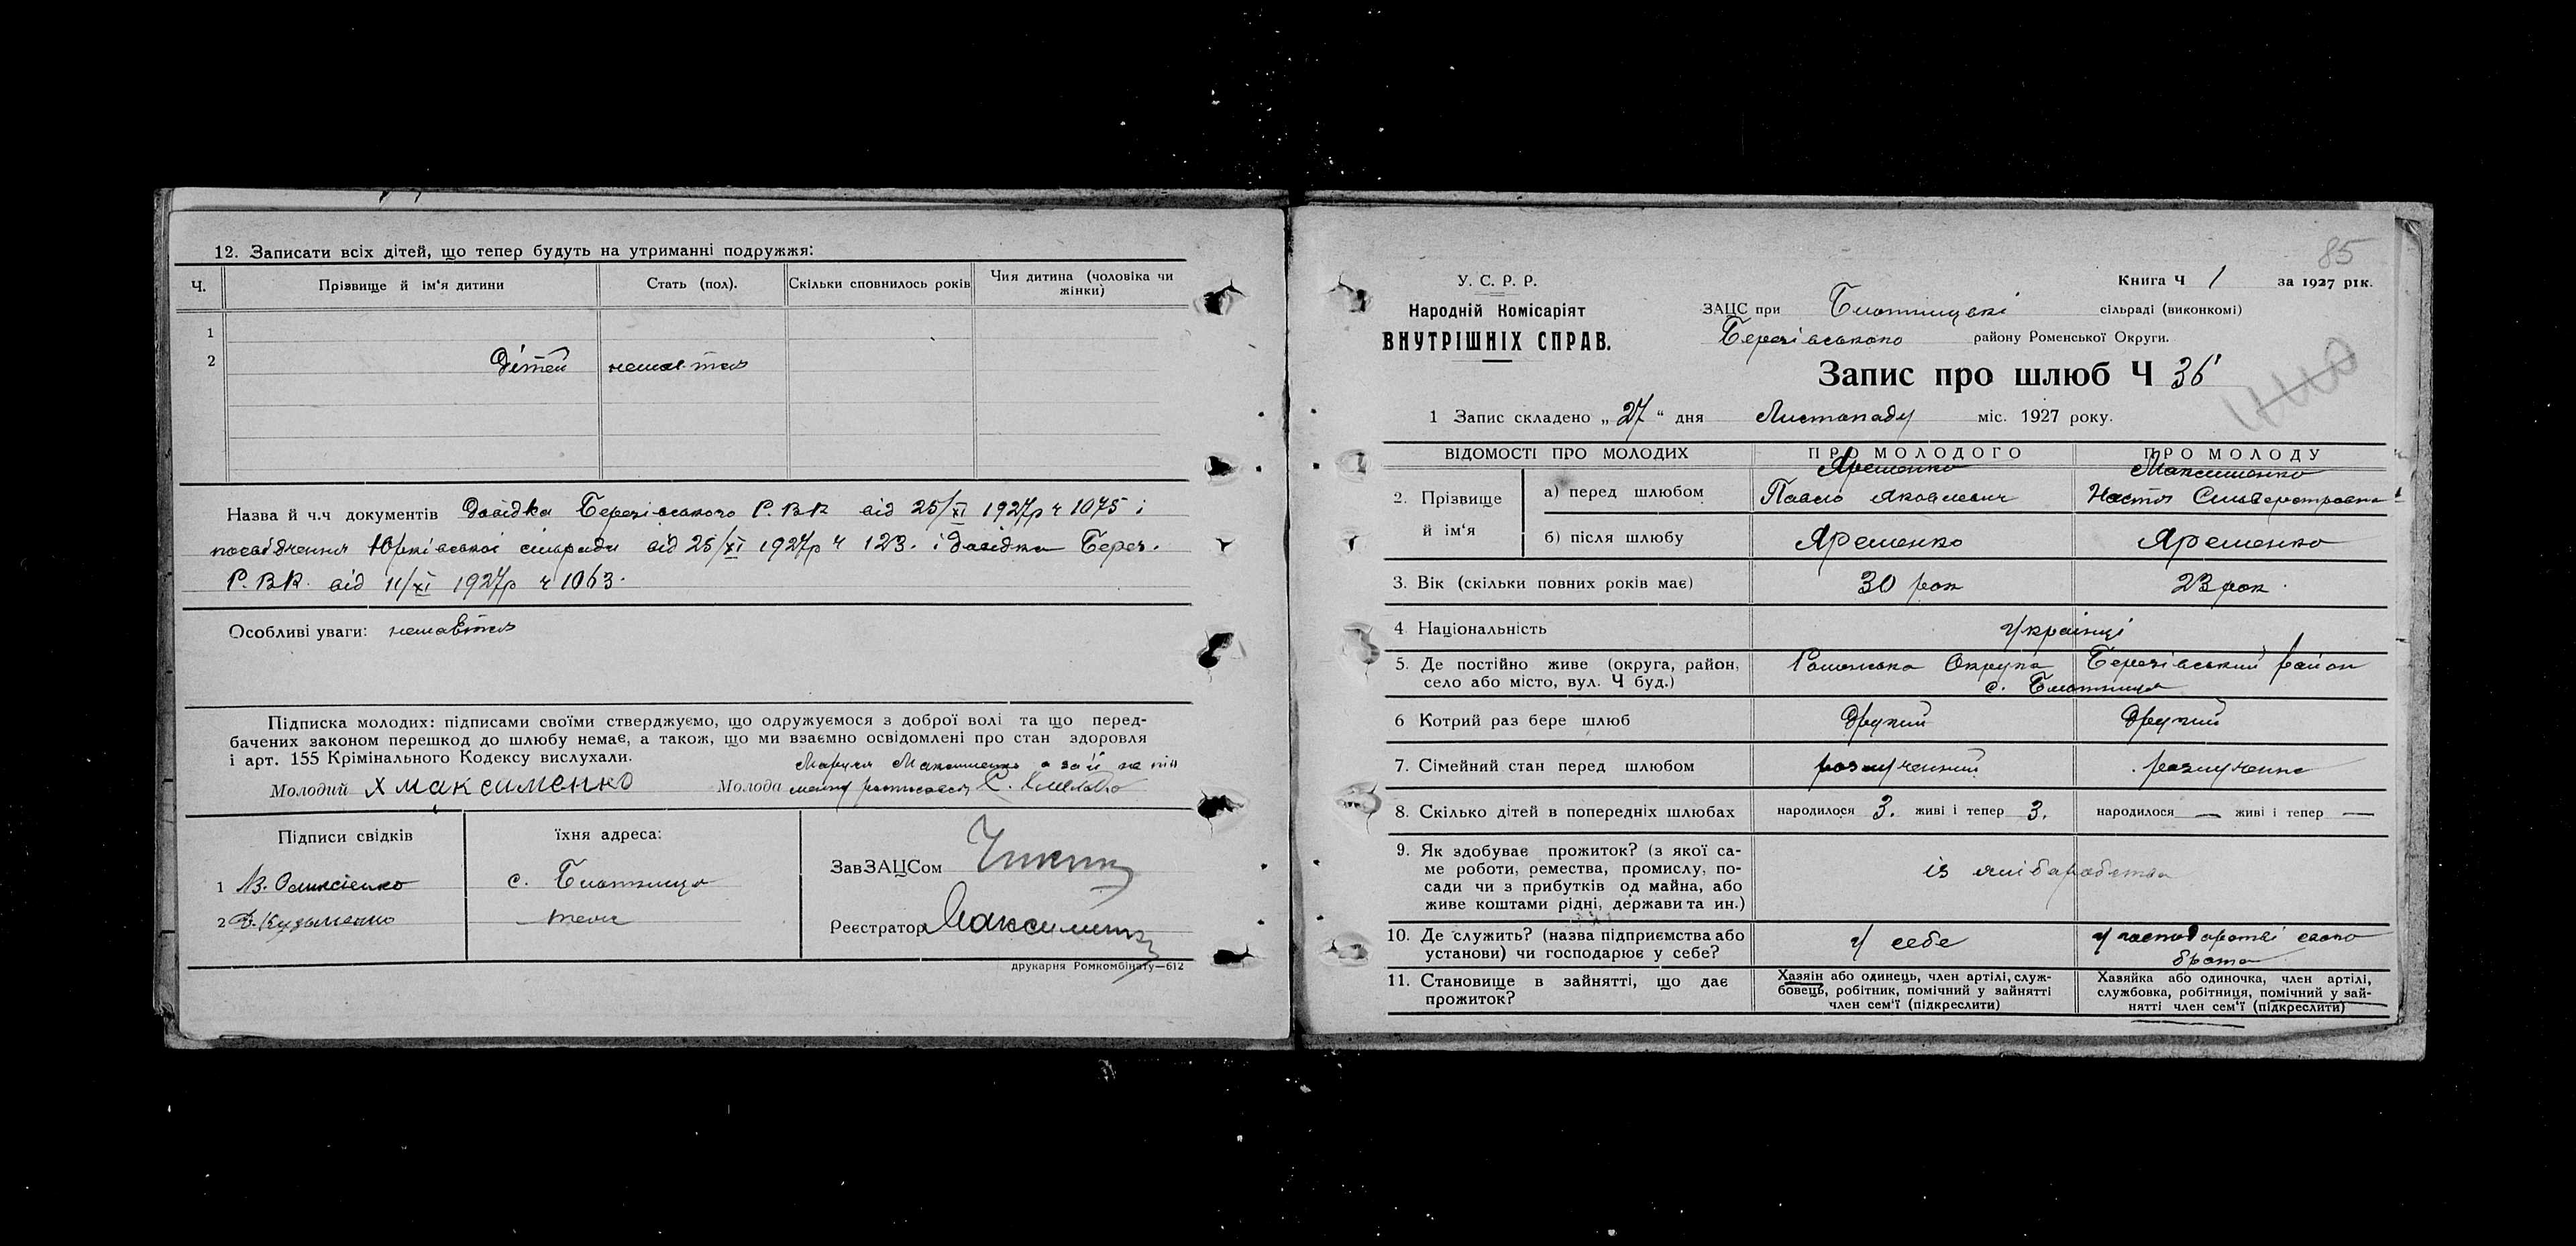 12. Записати всіх дітей, що тепер будуть на утриманні подружжя:
Ч. Прізвище й ім'я дитини Стать (пол). Скільки сповнилось років Чия дитина (чоловіка чи жінки)
1
2 Дітей немає
Назва й ч.ч документів Довідка Березівського Р.В.К від 25/XI 1927р ч 1075 і
посвідчення Юрківської сільради від 25/XI 1927р ч 123. і довідка Берез.
Р.В.К. від 11/XI 1927р ч 1063.
Особливі уваги:
Підписка молодих: підписами своїми стверджуємо, що одружуємося з доброї волі та що перед-
бачених законом перешкод до шлюбу немає, а також, що ми взаємно освідомлені про стан здоровля
і арт. 155 Крімінального Кодексу вислухали.
Молодий Х Максименко Молода Максименко а за її
Підписи свідків їхня адреса:
ЗавЗАЦСом
1 с. Блотниця
2 Кузьменко
Реєстратор Максименко
друкарня Ромкомбінату—612
85
У. С. Р. Р.
Народній Комісаріят
ВНУТРІШНІХ СПРАВ.
Книга Ч 1 за 1927 рік.
ЗАЦС при сільраді (виконкомі)
Березівського району Роменської Округи.
Запис про шлюб Ч 36
1 Запис складено „27“ дня Листопаду міс. 1927 року.
ВІДОМОСТІ ПРО МОЛОДИХ ПРО МОЛОДОГО ПРО МОЛОДУ
2. Прізвище й ім'я
а) перед шлюбом Яременко Павло Якович Максименко Настя Сильвестровна
б) після шлюбу Яременко Яременко
3. Вік (скільки повних років має) 30 рок 23 рок.
4 Національність Українці
5. Де постійно живе (округа, район, Роменська Округа Березівський район
село або місто, вул. Ч буд.) с. Блотниця
6 Котрий раз бере шлюб Другий Другий
7. Сімейний стан перед шлюбом розлучений розлучена
8. Скілько дітей в попередніх шлюбах народилося 3. живі і тепер 3. народилося — живі і тепер —
9. Як здобуває прожиток? (з якої са-
ме роботи, ремества, промислу, по-
сади чи з прибутків од майна, або
живе коштами рідні, держави та ин.)
із хліборобства
10. Де служить? (назва підприємства або
установи) чи господарює у себе?
у себе
у господарстві свого
брата
11. Становище в зайнятті, що дає
прожиток?
Хазяін або одинець, член артілі, служ-
бовець, робітник, помічний у зайнятті
член сем'ї (підкреслити)
Хазяйка або одиночка, член артілі,
службовка, робітниця, помічний у зай-
нятті член сем'ї (підкреслити)